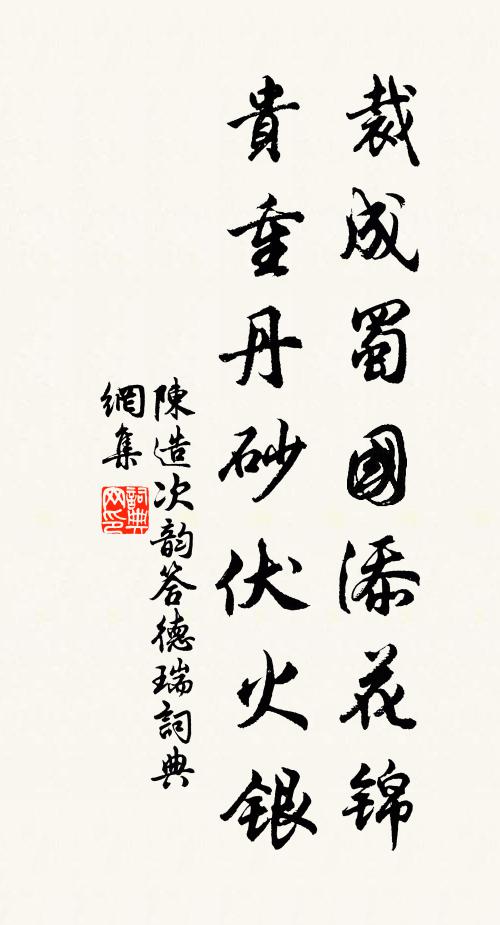 裁成蜀國添花錦
貴重丹砂伏火銀
陳造次韵答德瑞詞典
網集
詞典
网印